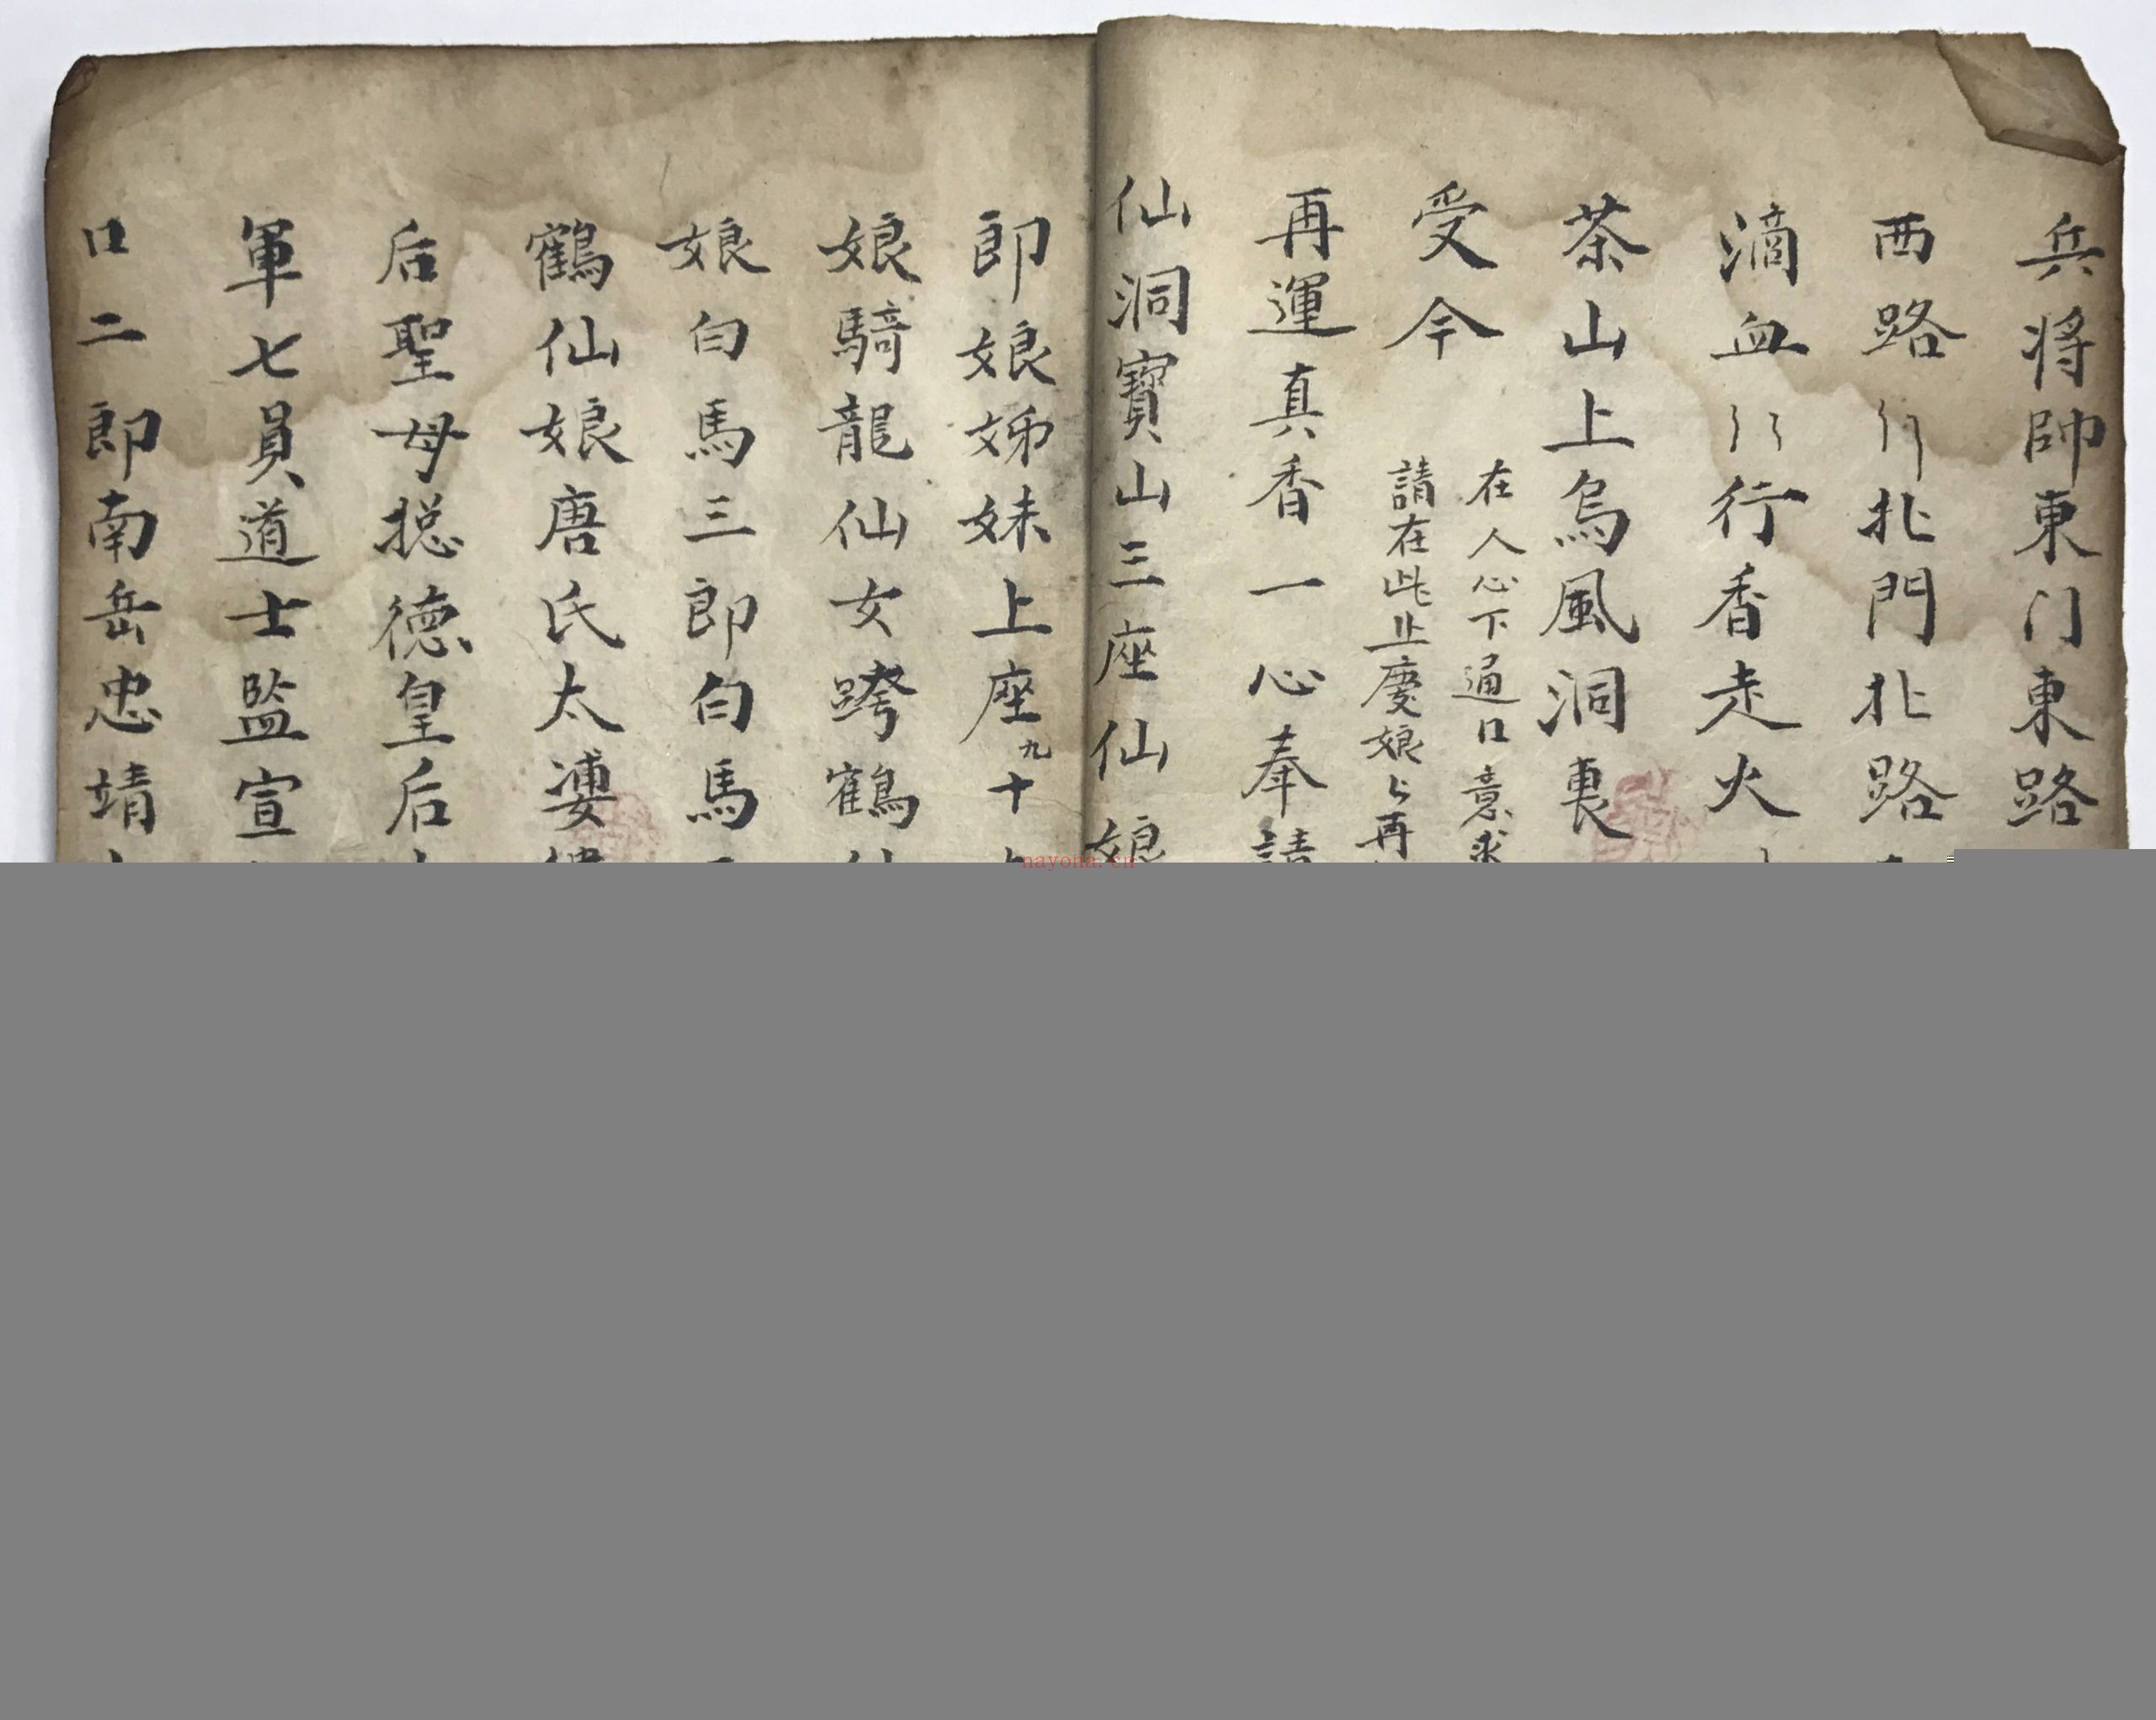 兵将帥東门東路
西路行北門北路
滴血行香走火
茶山上烏風洞裏
受今
在人心下通口意求
請在此止慶娘再
再運真香一心奉請
仙洞寶山三座仙娘
郎娘姊妹上座九十
娘騎龍仙女跨鶴仙
娘白馬三郎白馬
鶴仙娘唐氏太婆
后聖母摠德皇后
軍七員道士監宣
口二郎南岳忠靖
nayona.cn